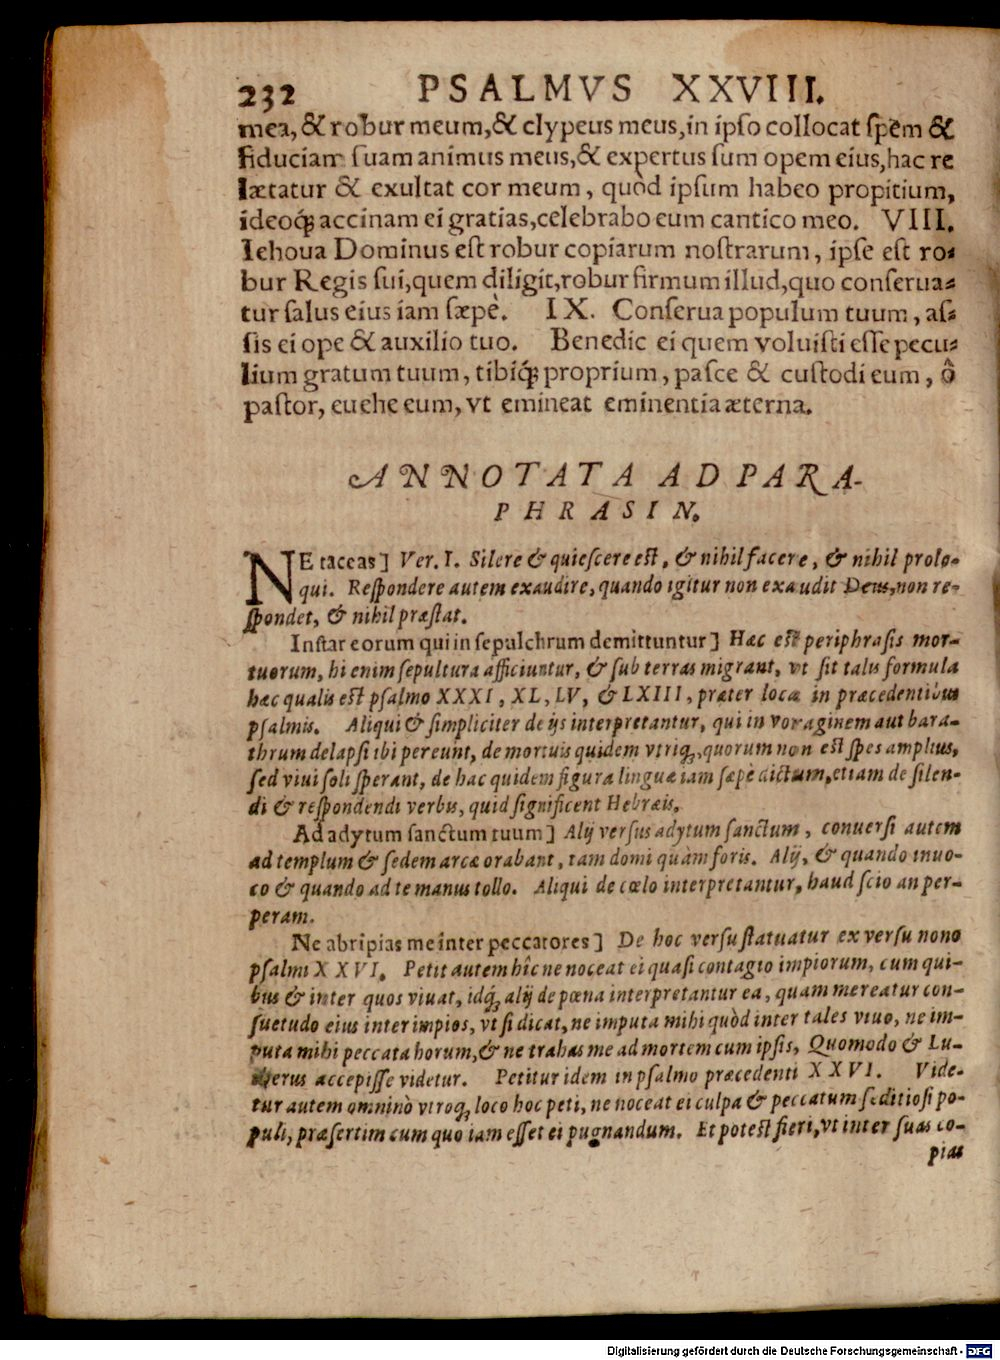 232 PSALMVS XXVIII.
mea, & robur meum, & clypeus meus, in ipso collocat spem &
fiduciam suam animus meus, & expertus sum opem eius, hac re
lætatur & exultat cor meum, quòd ipsum habeo propitium,
ideoq́; accinam ei gratias, celebrabo eum cantico meo. VIII.
Iehoua Dominus est robur copiarum nostrarum, ipse est ro-
bur Regis sui, quem diligit, robur firmum illud, quo conserua-
tur salus eius iam sæpè. IX. Conserua populum tuum, as-
sis ei ope & auxilio tuo. Benedic ei quem voluisti esse pecu-
lium gratum tuum, tibiq́; proprium, pasce & custodi eum, ô
pastor, euehe eum, vt emineat eminentia æterna.
ANNOTATA AD PARA-
PHRASIN.
NE taceas] Ver. I. Silere & quiescere est, & nihil facere, & nihil prolo-
qui. Respondere autem exaudire, quando igitur non exaudit Deus, non re-
spondet, & nihil præstat.
Instar eorum qui in sepulchrum demittuntur] Hæc est periphrasis mor-
tuorum, hi enim sepultura afficiuntur, & sub terras migrant, vt sit talis formula
hæc qualis est psalmo XXXI, XL, LV, & LXIII, præter loca in præcedentibus
psalmis. Aliqui & simpliciter de ijs interpretantur, qui in voraginem aut bara-
thrum delapsi ibi pereunt, de mortuis quidem vtriq;, quorum non est spes amplius,
sed viui soli sperant, de hac quidem figura linguæ iam sæpè dictum, etiam de silen-
di & respondendi verbis, quid significent Hebræis.
Ad adytum sanctum tuum] Alij versus adytum sanctum, conuersi autem
ad templum & sedem arcæ orabant, tam domi quàm foris. Alij, & quando inuo-
co & quando ad te manus tollo. Aliqui de cœlo interpretantur, haud scio an per-
peram.
Ne abripias me inter peccatores] De hoc versu statuatur ex versu nono
psalmi XXVI. Petit autem hîc ne noceat ei quasi contagio impiorum, cum qui-
bus & inter quos viuat, idq́; alij de pœna interpretantur ea, quam mereatur con-
suetudo eius inter impios, vt si dicat, ne imputa mihi quòd inter tales viuo, ne im-
puta mihi peccata horum, & ne trahas me ad mortem cum ipsis, Quomodo & Lu-
therus accepisse videtur. Petitur idem in psalmo præcedenti XXVI. Vide-
tur autem omninò vtroq; loco hoc peti, ne noceat ei culpa & peccatum seditiosi po-
puli, præsertim cum quo iam esset ei pugnandum. Et potest fieri, vt inter suas co-
pias
Digitalisierung gefördert durch die Deutsche Forschungsgemeinschaft - DFG